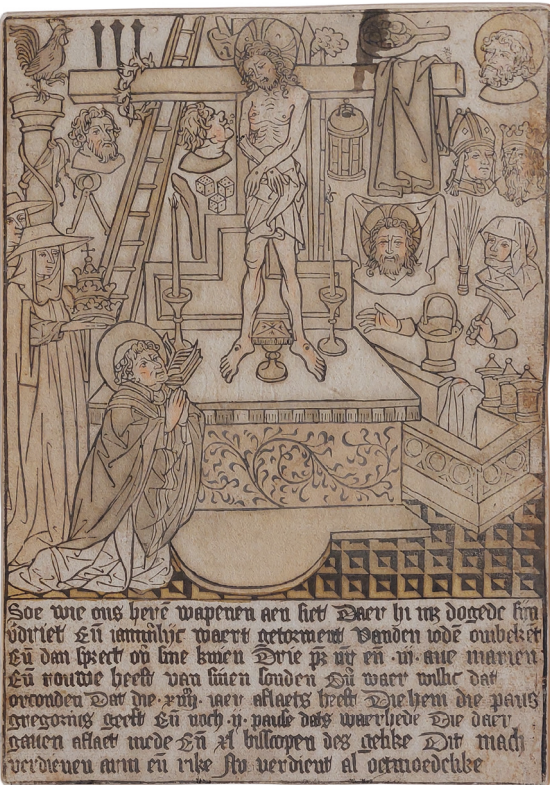 Soe wie ons herē wapenen aen siet Daer hi mz dogede sijn
v̄driet Eū iāmerlijc waert getorment Vanden iodē ombekēt
Eū dan sprect op sine knien Drie pr̄ nr̄ en̄ .iij. aue marien
Eū rouwe heeft van sinen sonden Dū waer wilic dat
orconden Dat die .xiiij. iaer aflaets heeft Die hem die paus
gregorius geeft Eū noch .ij. pause dats waerhede Die daer
gauen aflaet mede Eū xl bisscopen des gelike Dit mach
verdienen arm eū rike Nv verdient al oetmoedelike